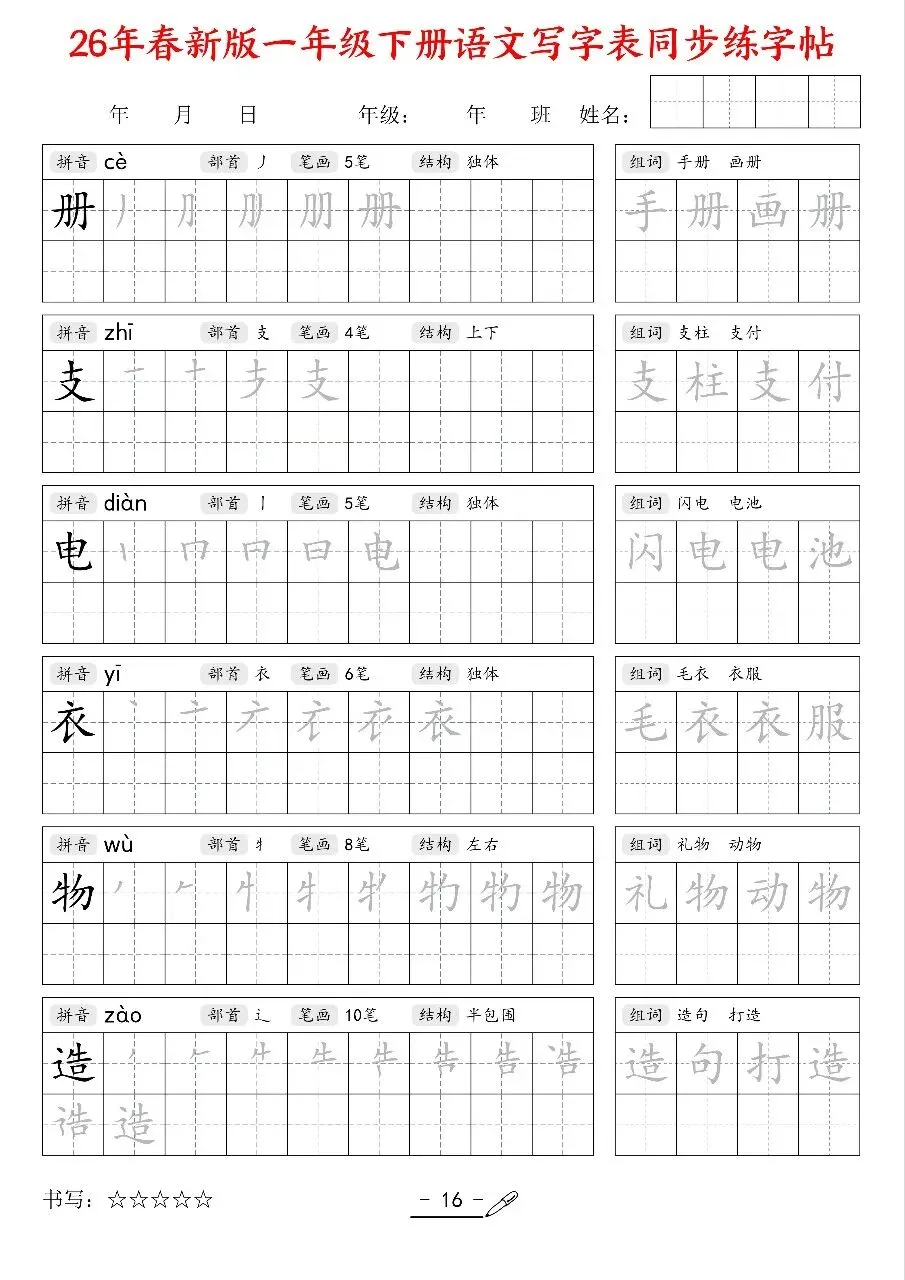 26年春新版一年级下册语文写字表同步练字帖
年 月 日 年级： 年 班 姓名：
拼音 cè 部首 丿 笔画 5笔 结构 独体 组词 手册 画册
册 丿 册 手 册 画 册
拼音 zhī 部首 支 笔画 4笔 结构 上下 组词 支柱 支付
支 一 十 支 支 柱 支 付
拼音 diàn 部首 丨 笔画 5笔 结构 独体 组词 闪电 电池
电 丨 日 电 闪 电 电 池
拼音 yī 部首 衣 笔画 6笔 结构 独体 组词 毛衣 衣服
衣 丶 亠 衣 毛 衣 衣 服
拼音 wù 部首 牜 笔画 8笔 结构 左右 组词 礼物 动物
物 丿 𠂉 牜 物 礼 物 动 物
拼音 zào 部首 辶 笔画 10笔 结构 半包围 组词 造句 打造
造 丿 𠂉 告 造 句 打 造
造
书写：☆☆☆☆☆ - 16 -